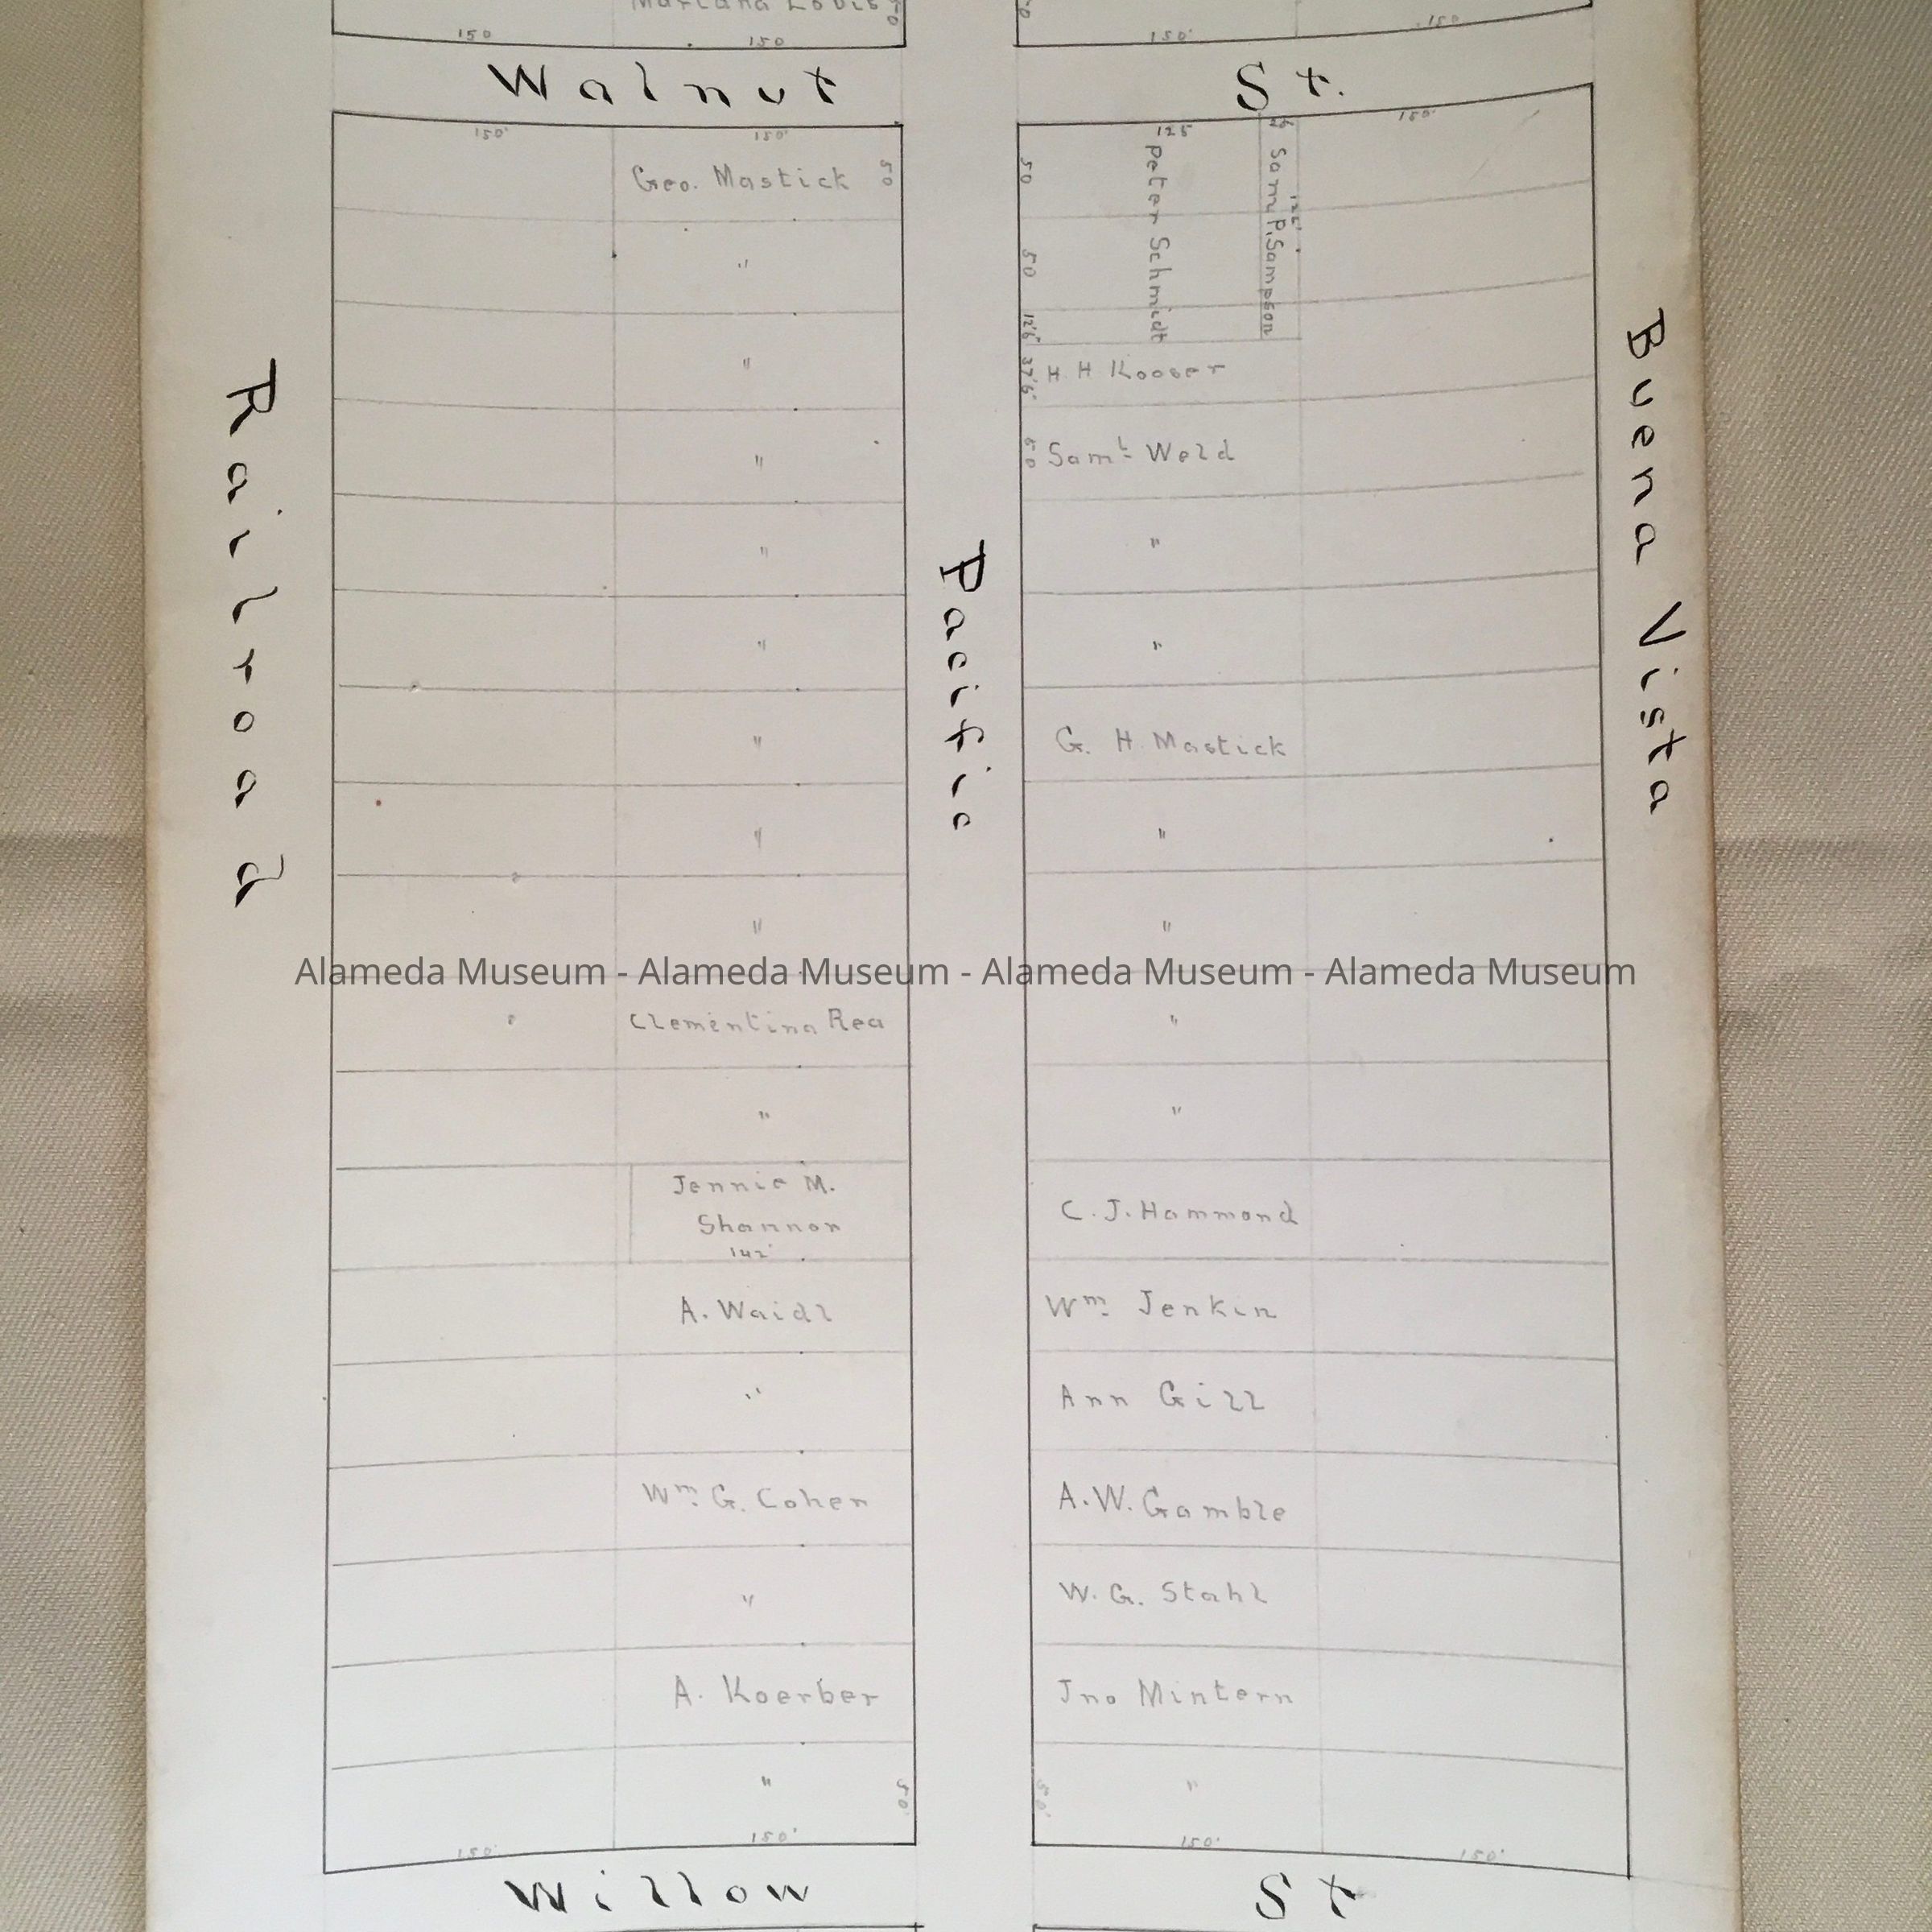 Mariana Lovis 50
150 150
50
150' 150
Walnut St.
Railroad
150' 150'
Geo. Mastick 50
"
"
"
"
"
"
"
"
Clementina Rea
"
Jennie M.
Shannon
142'
A. Waidl
"
Wm. G. Cohen
"
A. Koerber
" 50'
150' 150'
Pacific
125 25 150'
50
50
12'6"
37'6"
50
Peter Schmidt
Sam P. Sampson
125'
H H Kooser
Saml. Weld
"
"
G. H. Mastick
"
"
"
"
C. J. Hammond
Wm. Jenkin
Ann Gill
A. W. Gamble
W. G. Stahl
Jno Mintern
50' "
150' 150'
Buena Vista
Alameda Museum - Alameda Museum - Alameda Museum - Alameda Museum
Willow St